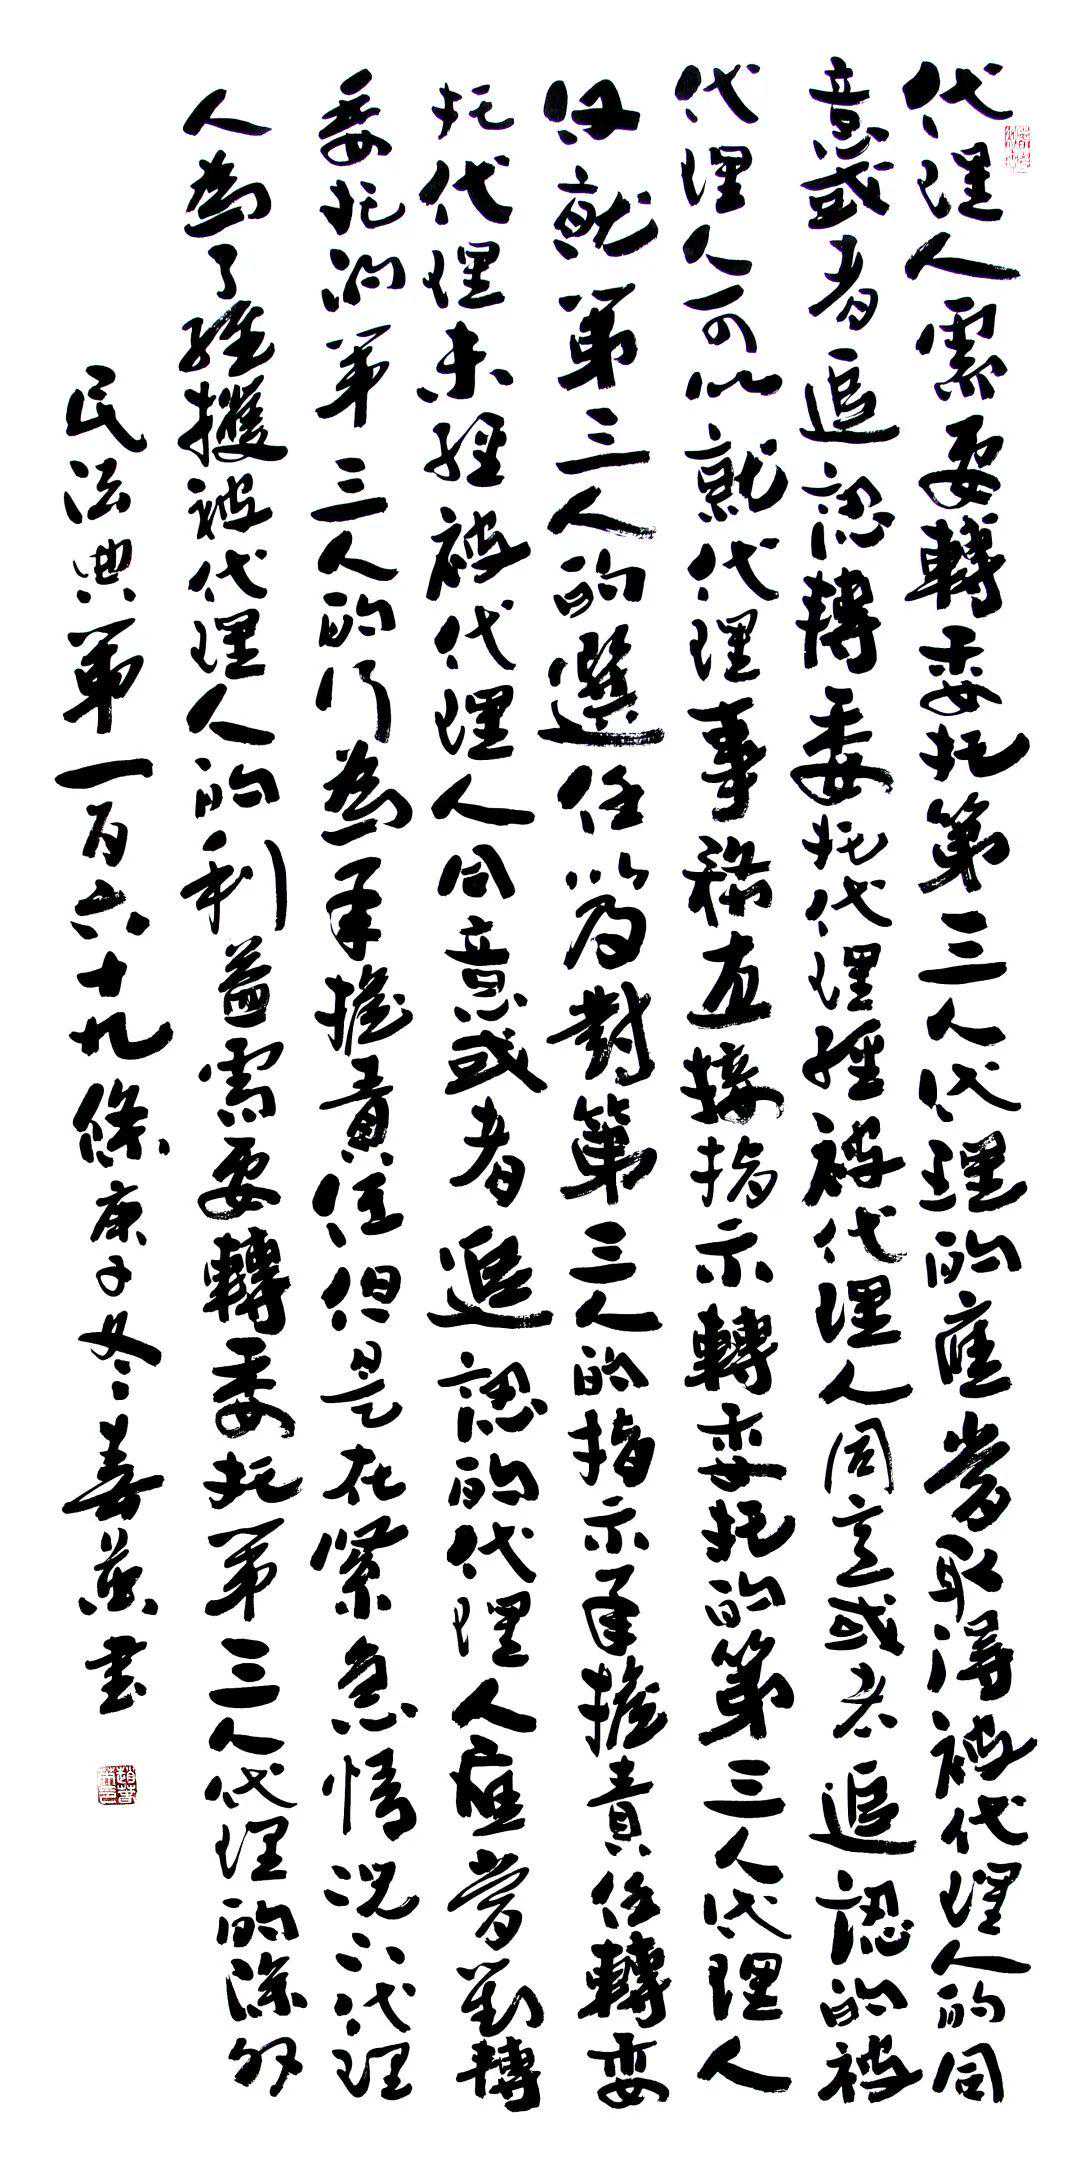 代理人需要轉委托第三人代理的應當取得被代理人的同
意或者追認轉委托代理經被代理人同意或者追認的被
代理人可以就代理事務直接指示轉委托的第三人代理人
仅就第三人的選任以及對第三人的指示承擔責任轉委
托代理未經被代理人同意或者追認的代理人應當對轉
委托的第三人的行為承擔責任但是在緊急情況下代理
人為了維護被代理人的利益需要轉委托第三人代理的除外
民法典第一百六十九條庚子冬善燕書